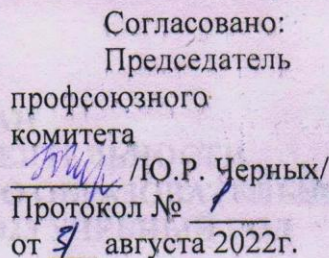 Согласовано:
Председатель
профсоюзного
комитета
/Ю.Р. Черных/
Протокол № 1
от 31 августа 2022г.